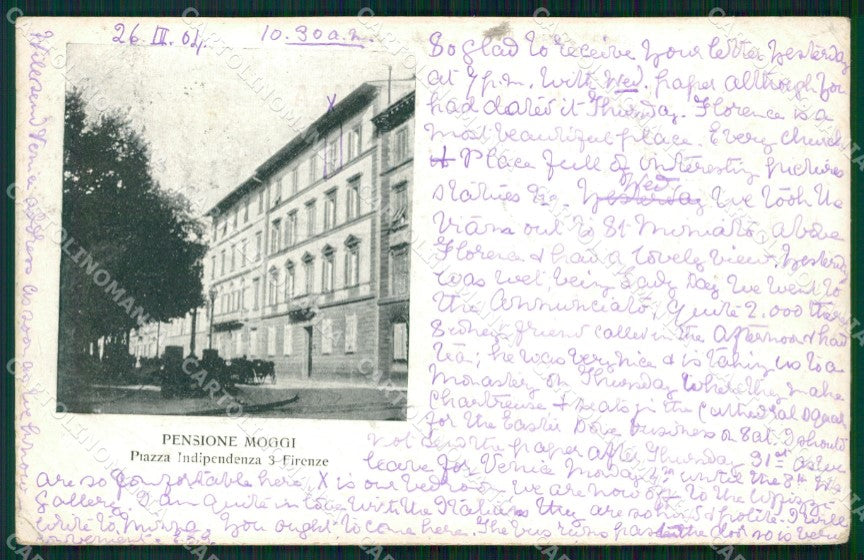 26 III. 04. 10.30 a.m.
So glad to receive your letter yesterday
at 7 p.m. with Wed. paper although you
had dated it Thursday. Florence is a
most beautiful place. Every church
+ Place full of interesting pictures
statues &c. yesterday Wed. we took the
tram out to St Miniato above
Florence & had a lovely view. Yesterday
was wet, being Lady Day we went to
the Annunciata, quite 2.000 there
friend called in the afternoon & had
tea; he was very nice & is taking us to a
monastery on Thursday where they make
Chartreuse + seats in the Cathedral Square
for the Easter Dove business on Sat. I should
not send the paper after Thursday 31st as we
leave for Venice Monday
are so comfortable here, X is our bedroom, we are now off to the Uffizi
Gallery. I am quite in love with the Italians they are so & polite. I will
write to . You ought to come here. The bus runs past the door so is very
convenient.
Will send Venice address as soon as we know
X
PENSIONE MOGGI
Piazza Indipendenza 3 Firenze
CARTOLINOMANIA